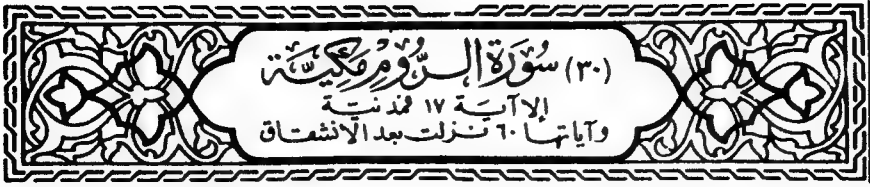 (٣٠) سُورَة الرُّومِ مَكِيَّة
إلا آية ١٧ فمدنية
وآياتها ٦٠ نزلت بعد الانشقاق